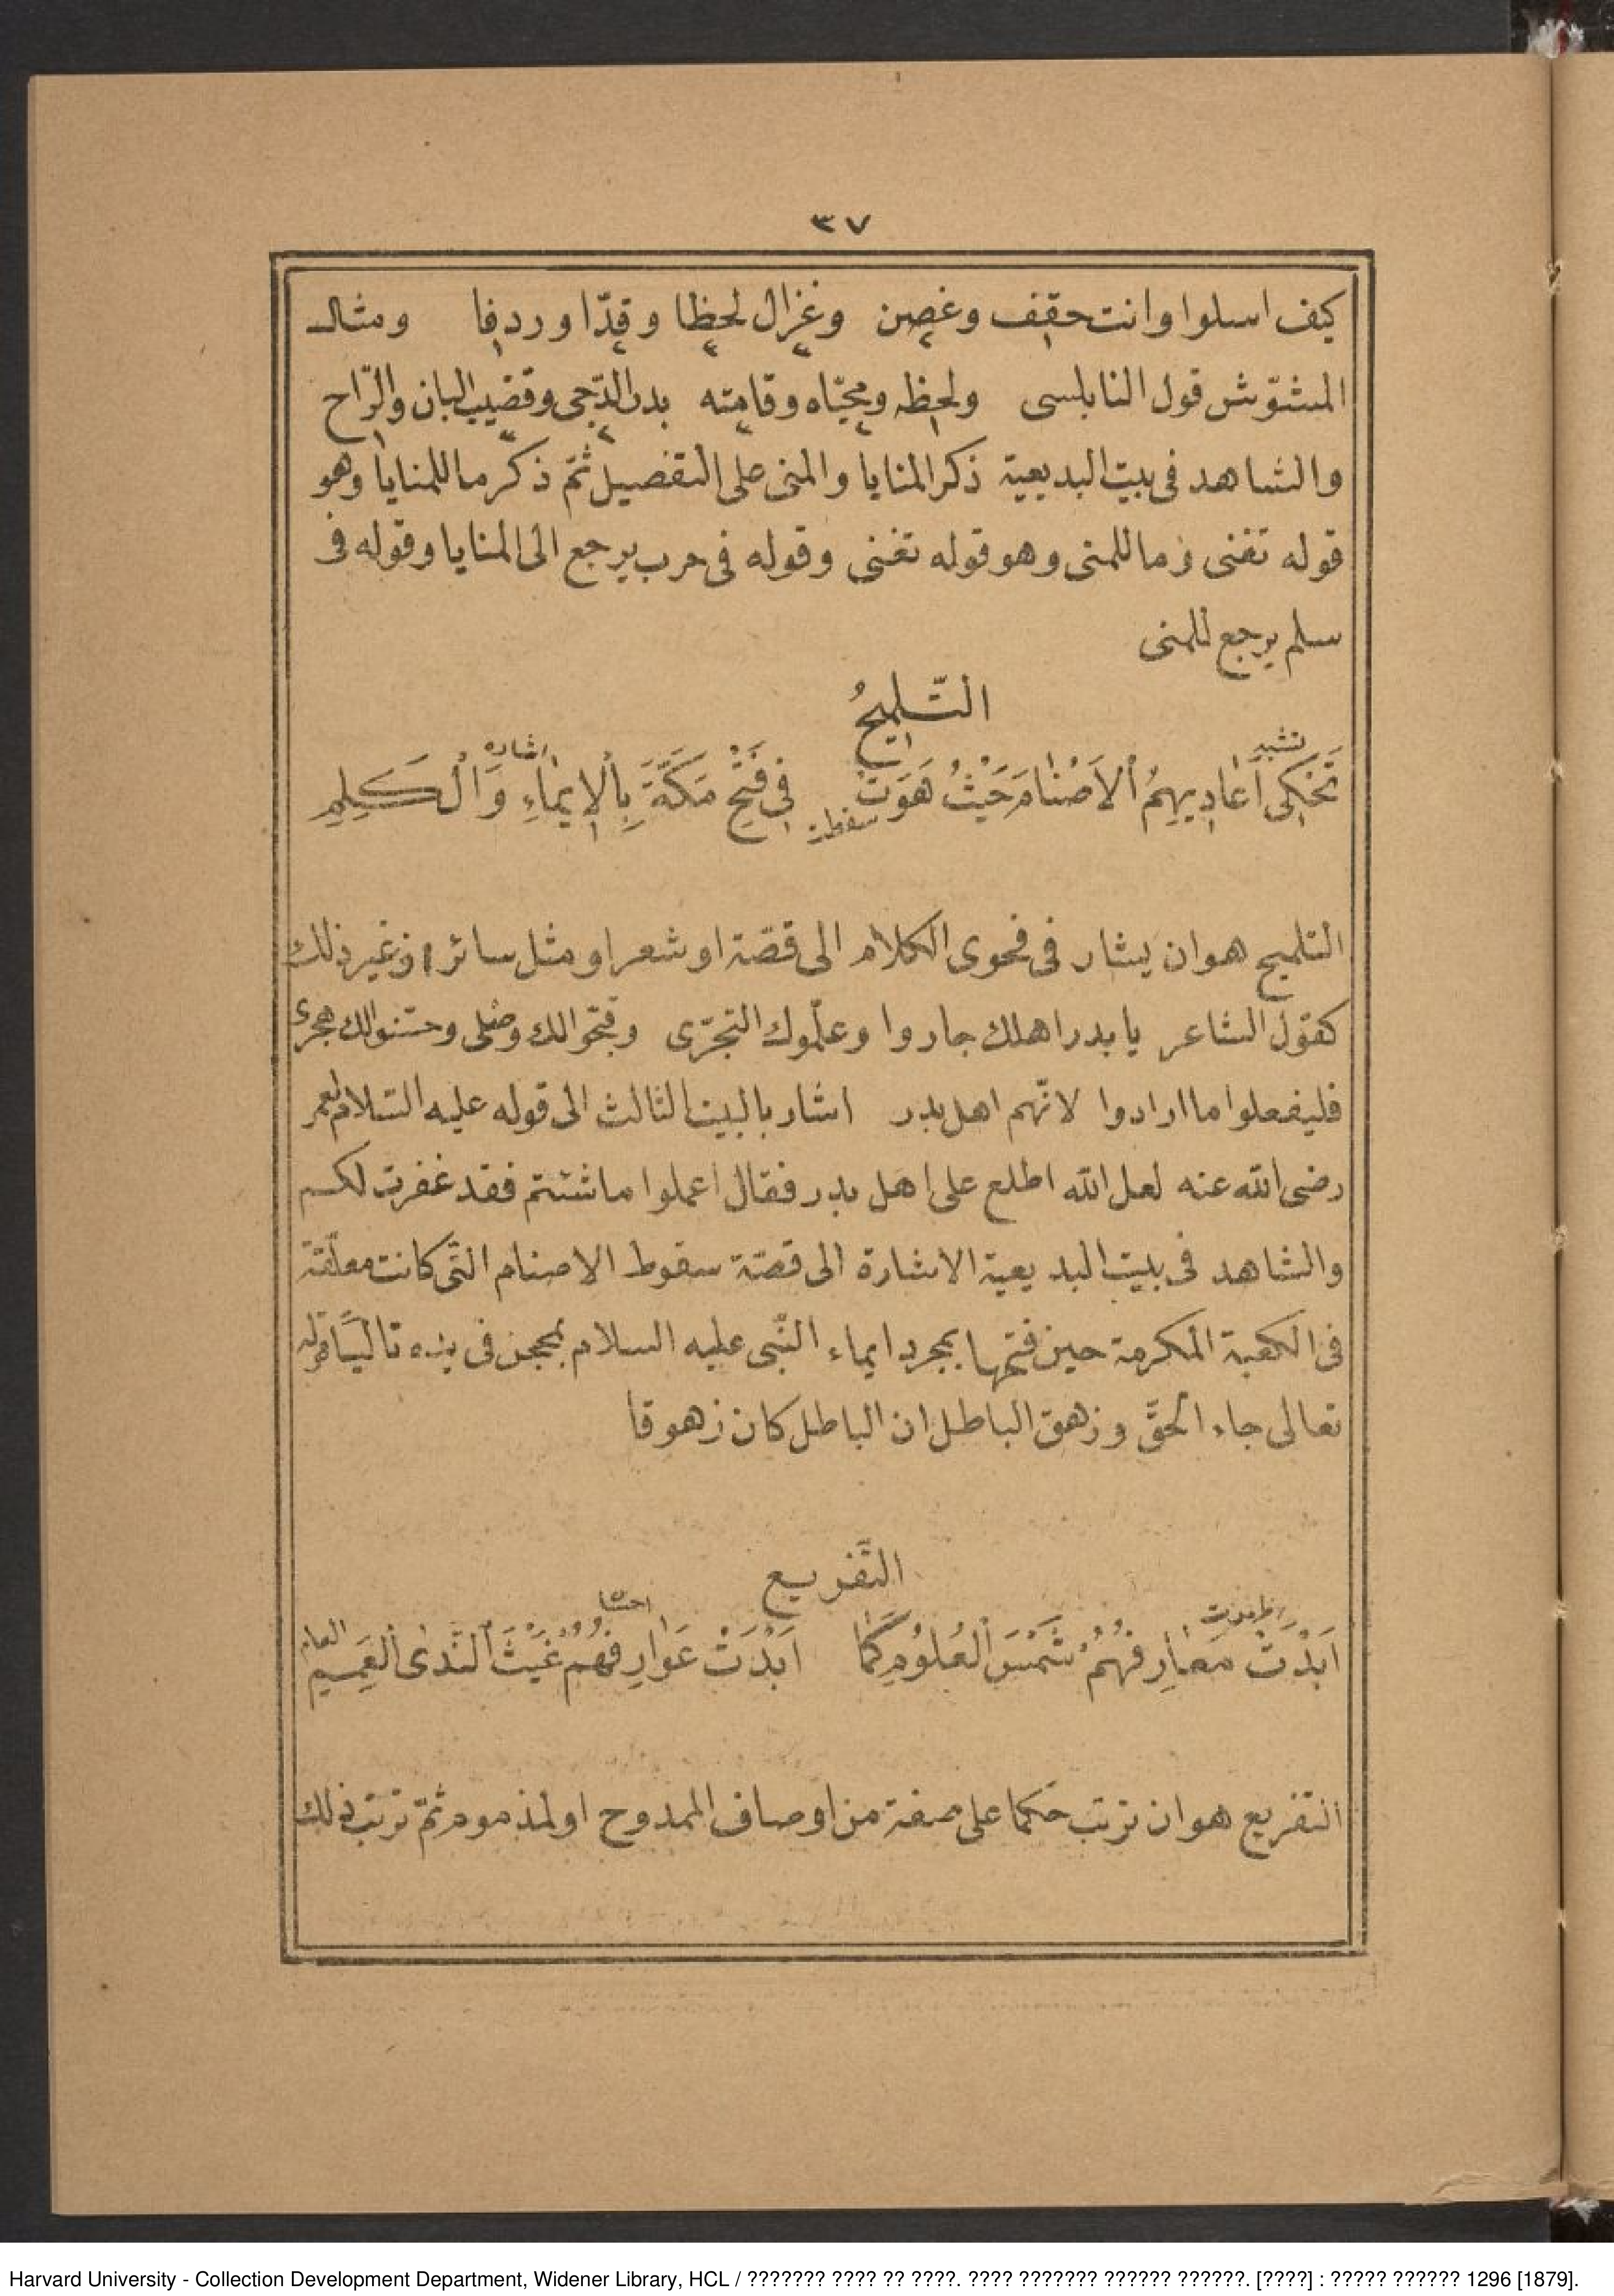 ٣٧
كيف اسلوا وانت حقف وغصن وغزال لحظا وقدّا وردفا ومثال
المشوّش قول النابلسى ولحظه ومحيّاه وقامته بدر الدّجى وقضيب البان والرّاح
والشاهد فى بيت البديعية ذكر المنايا والمنى على التفصيل ثمّ ذكر ما للمنايا وهو
قوله تفنى وما للمنى وهو قوله تغنى وقوله فى حرب يرجع الى المنايا وقوله فى
سلم يرجع للمنى
التّلميحُ
تشبه اشاره
تَحْكِى اَعَادِيهِمُ ٱلْاَصْنَامَ حَيْثُ هَوَتْ فِى فَتْحِ مَكَّةَ بِٱلْاِيمَاءِ وَٱلْكَلِمِ
سقطت
التلميح هو ان يشار فى فحوى الكلام الى قصّة او شعر او مثل سائر او غير ذلك
كقول الشاعر يا بدر اهلك جاروا وعلّموك التجرّى وقبّحوا لك وصلى وحسّنوا لك هجرى
فليفعلوا ما ارادوا لانّهم اهل بدر اشار بالبيت الثالث الى قوله عليه السّلام لعمر
رضى الله عنه لعل الله اطلع على اهل بدر فقال اعملوا ما شئتم فقد غفرت لكم
والشاهد فى بيت البديعية الاشارة الى قصّة سقوط الاصنام الّتى كانت معلّقة
فى الكعبة المكرمة حين فتحها بمجرد ايماء النّبى عليه السلام بمحجن فى يده تاليًا قوله
تعالى جاء الحقّ وزهق الباطل ان الباطل كان زهوقا
التّفريع
اظهرت العام
اَبْدَتْ مَعَارِفُهُمْ شَمْسَ ٱلْعُلُومِ كَمَا اَبْدَتْ عَوَارِفُهُمْ غَيْثَ ٱلنَّدَى ٱلْعَمِيمِ
التفريع هو ان ترتب حكما على صفة من اوصاف الممدوح او المذموم ثمّ ترتب ذلك
Harvard University - Collection Development Department, Widener Library, HCL / ??????? ???? ?? ????. ???? ??????? ?????? ??????. [????] : ????? ?????? 1296 [1879].